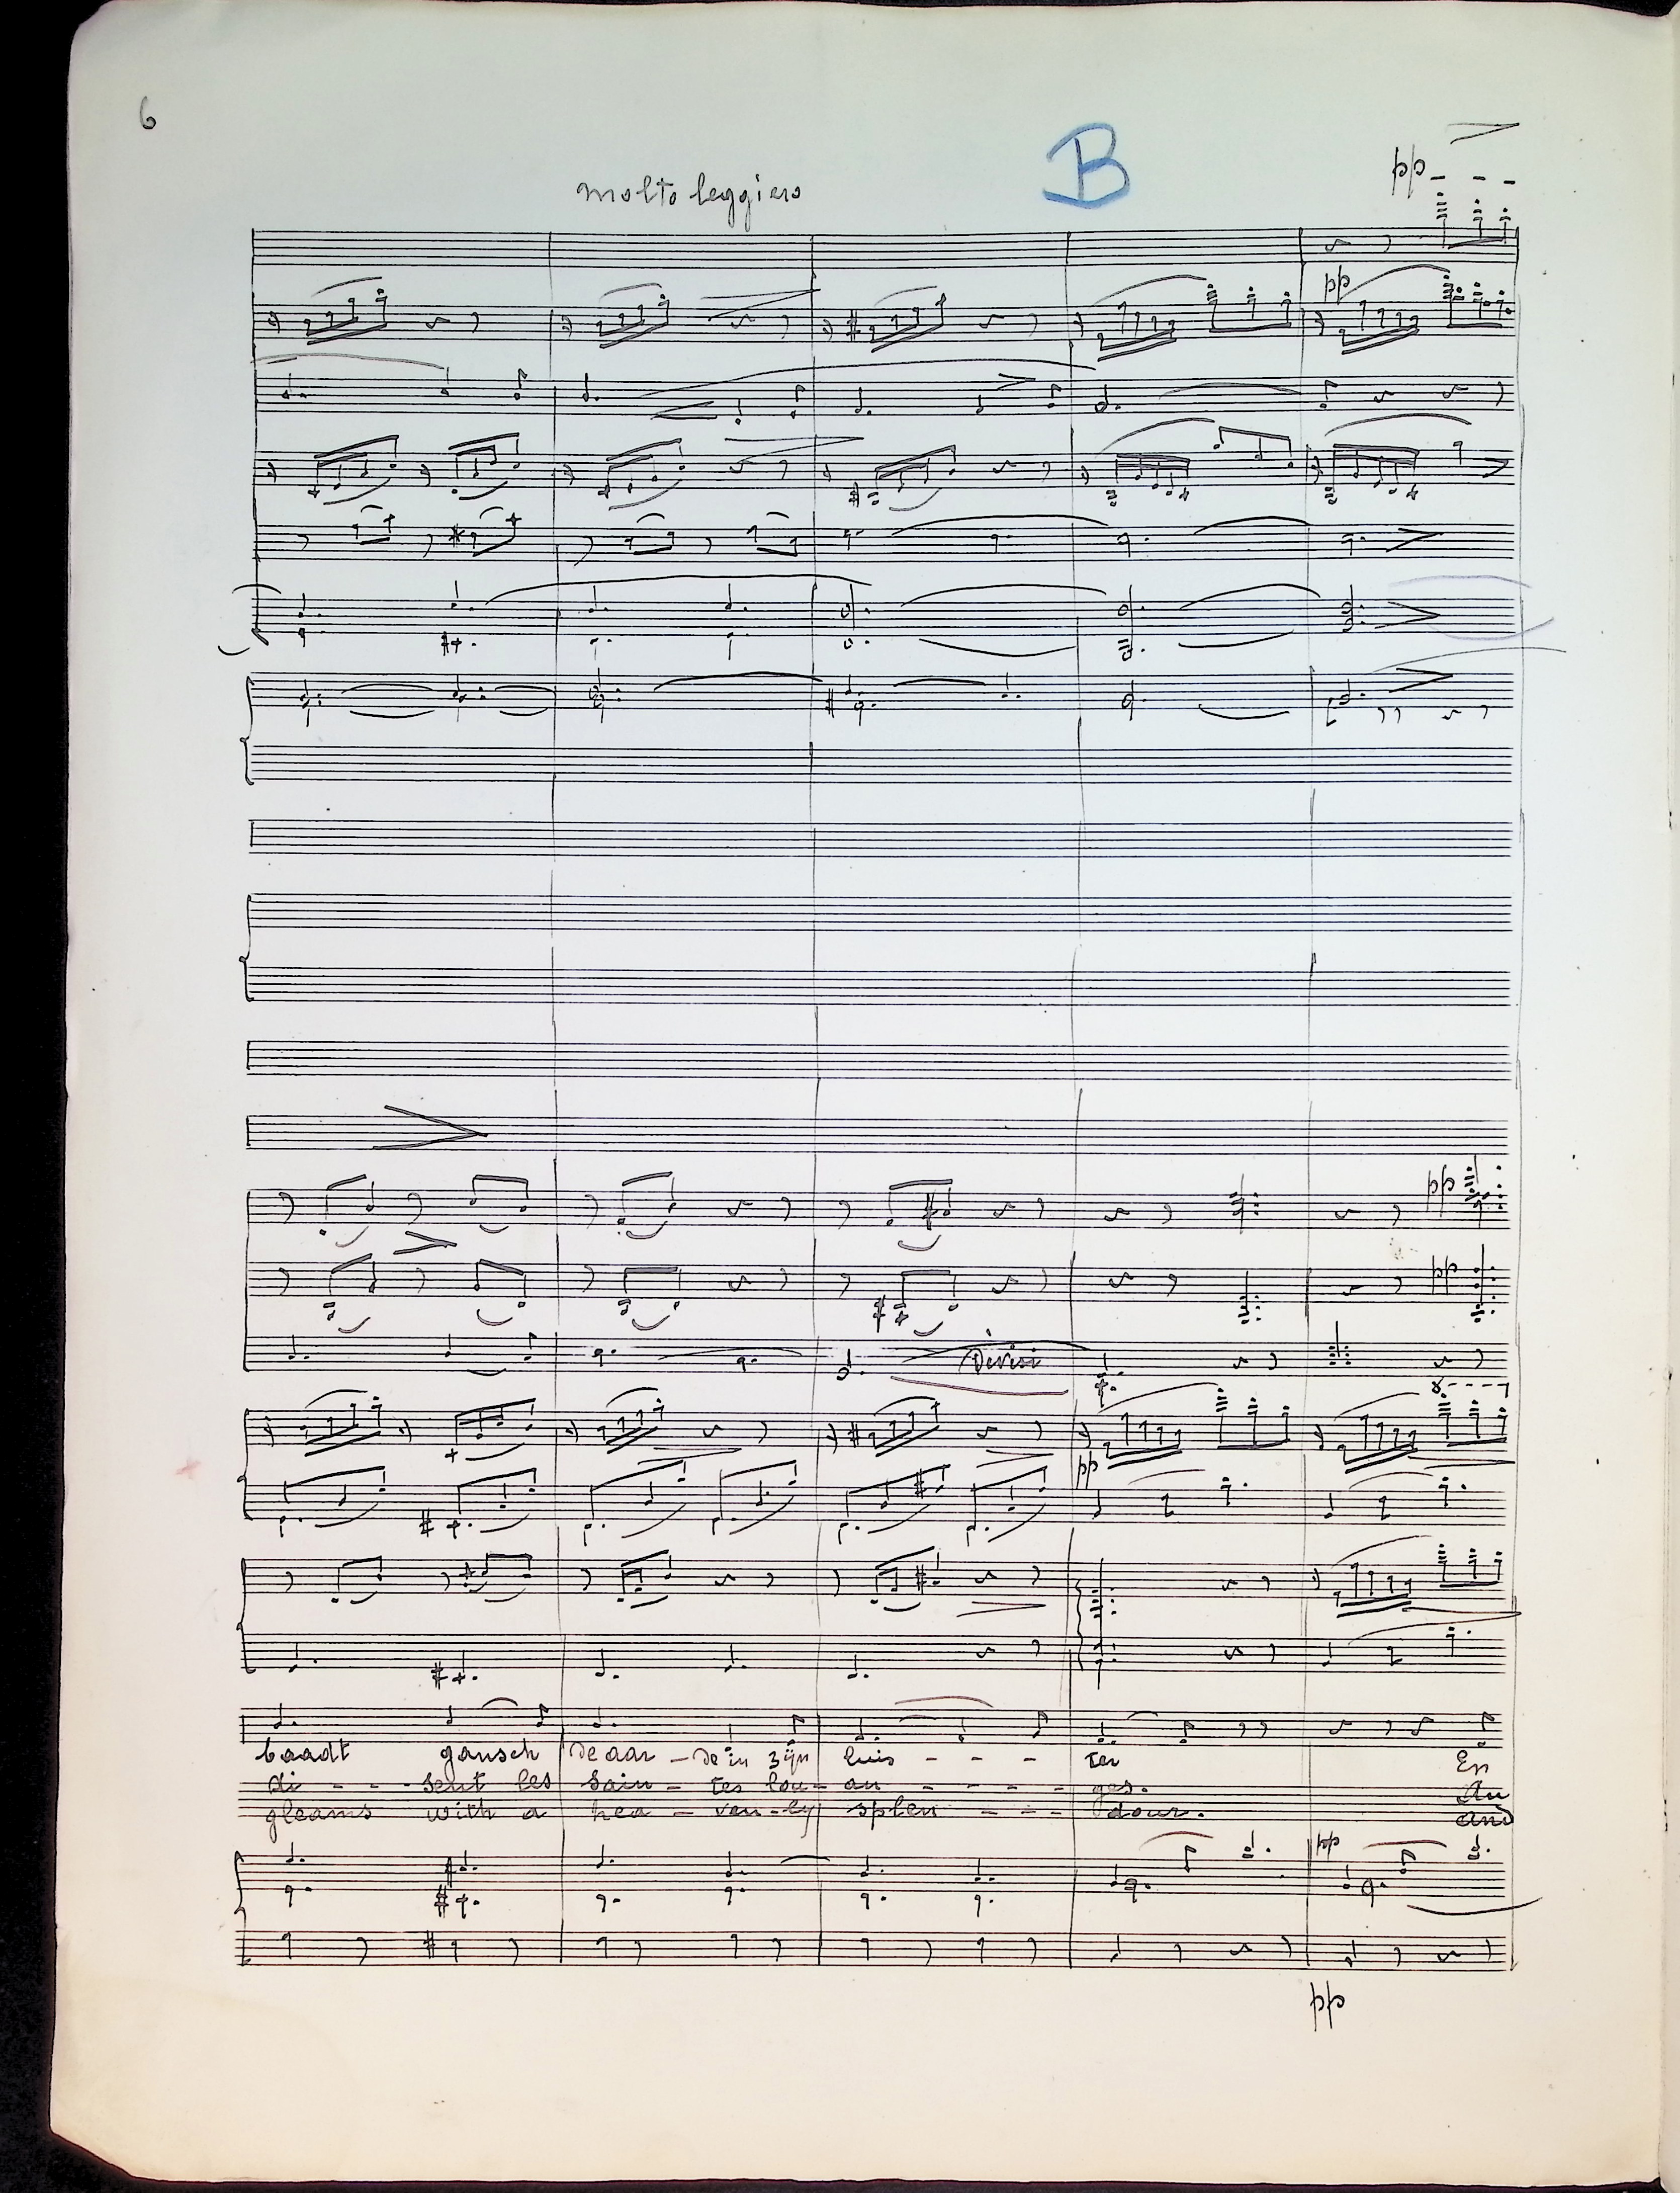 6
B
pp
molto leggiero
pp
pp
pp
Divisi
8
pp
baadt gansch de aar - de in zijn luis - - - ter En
di - - - sent les sain - tes lou - an - - - - ges. Au
gleams with a hea - ven - ly splen - - - dour. and
pp
pp